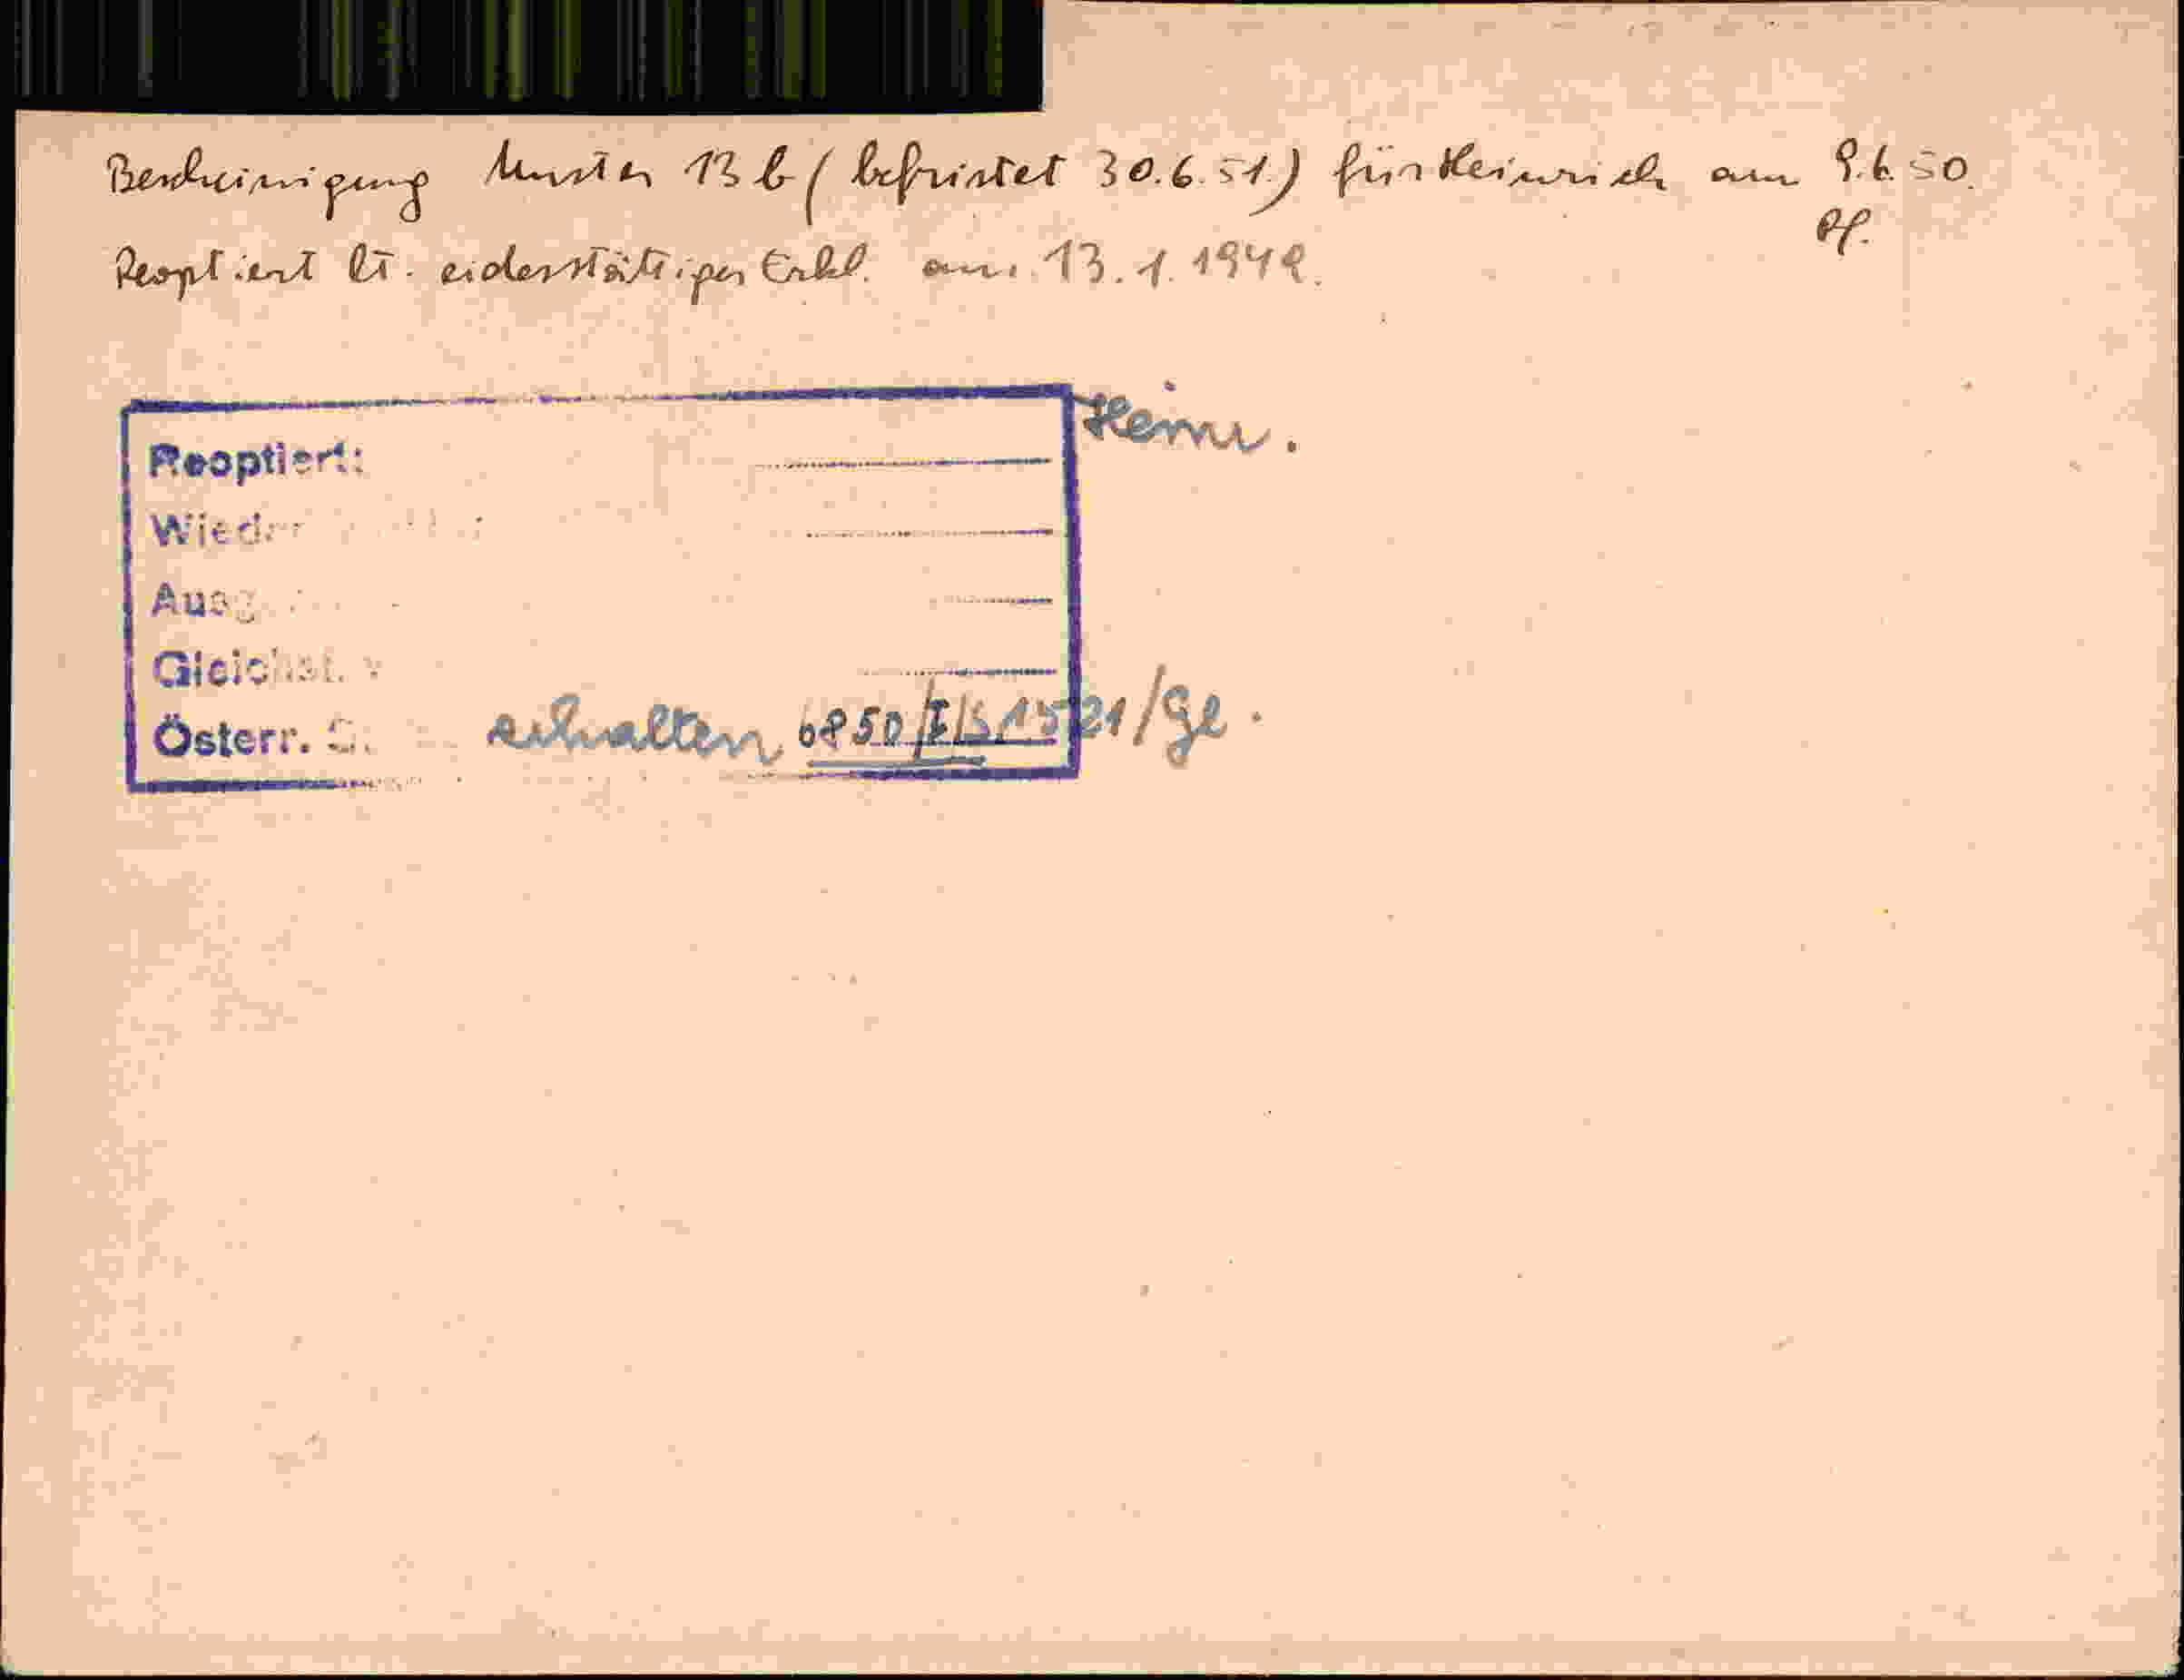 Bescheinigung Muster 13 b (befristet 30.6.51.) für Heinrich am 9.6.50.
Pf.
Reoptiert lt. eidesstattiger Erkl. am 13.1.1949.
Heinr.
Reoptiert:
Wieder
Ausg
Gleichst.
Österr. S. erhalten 6850/I/S1521/Ge.